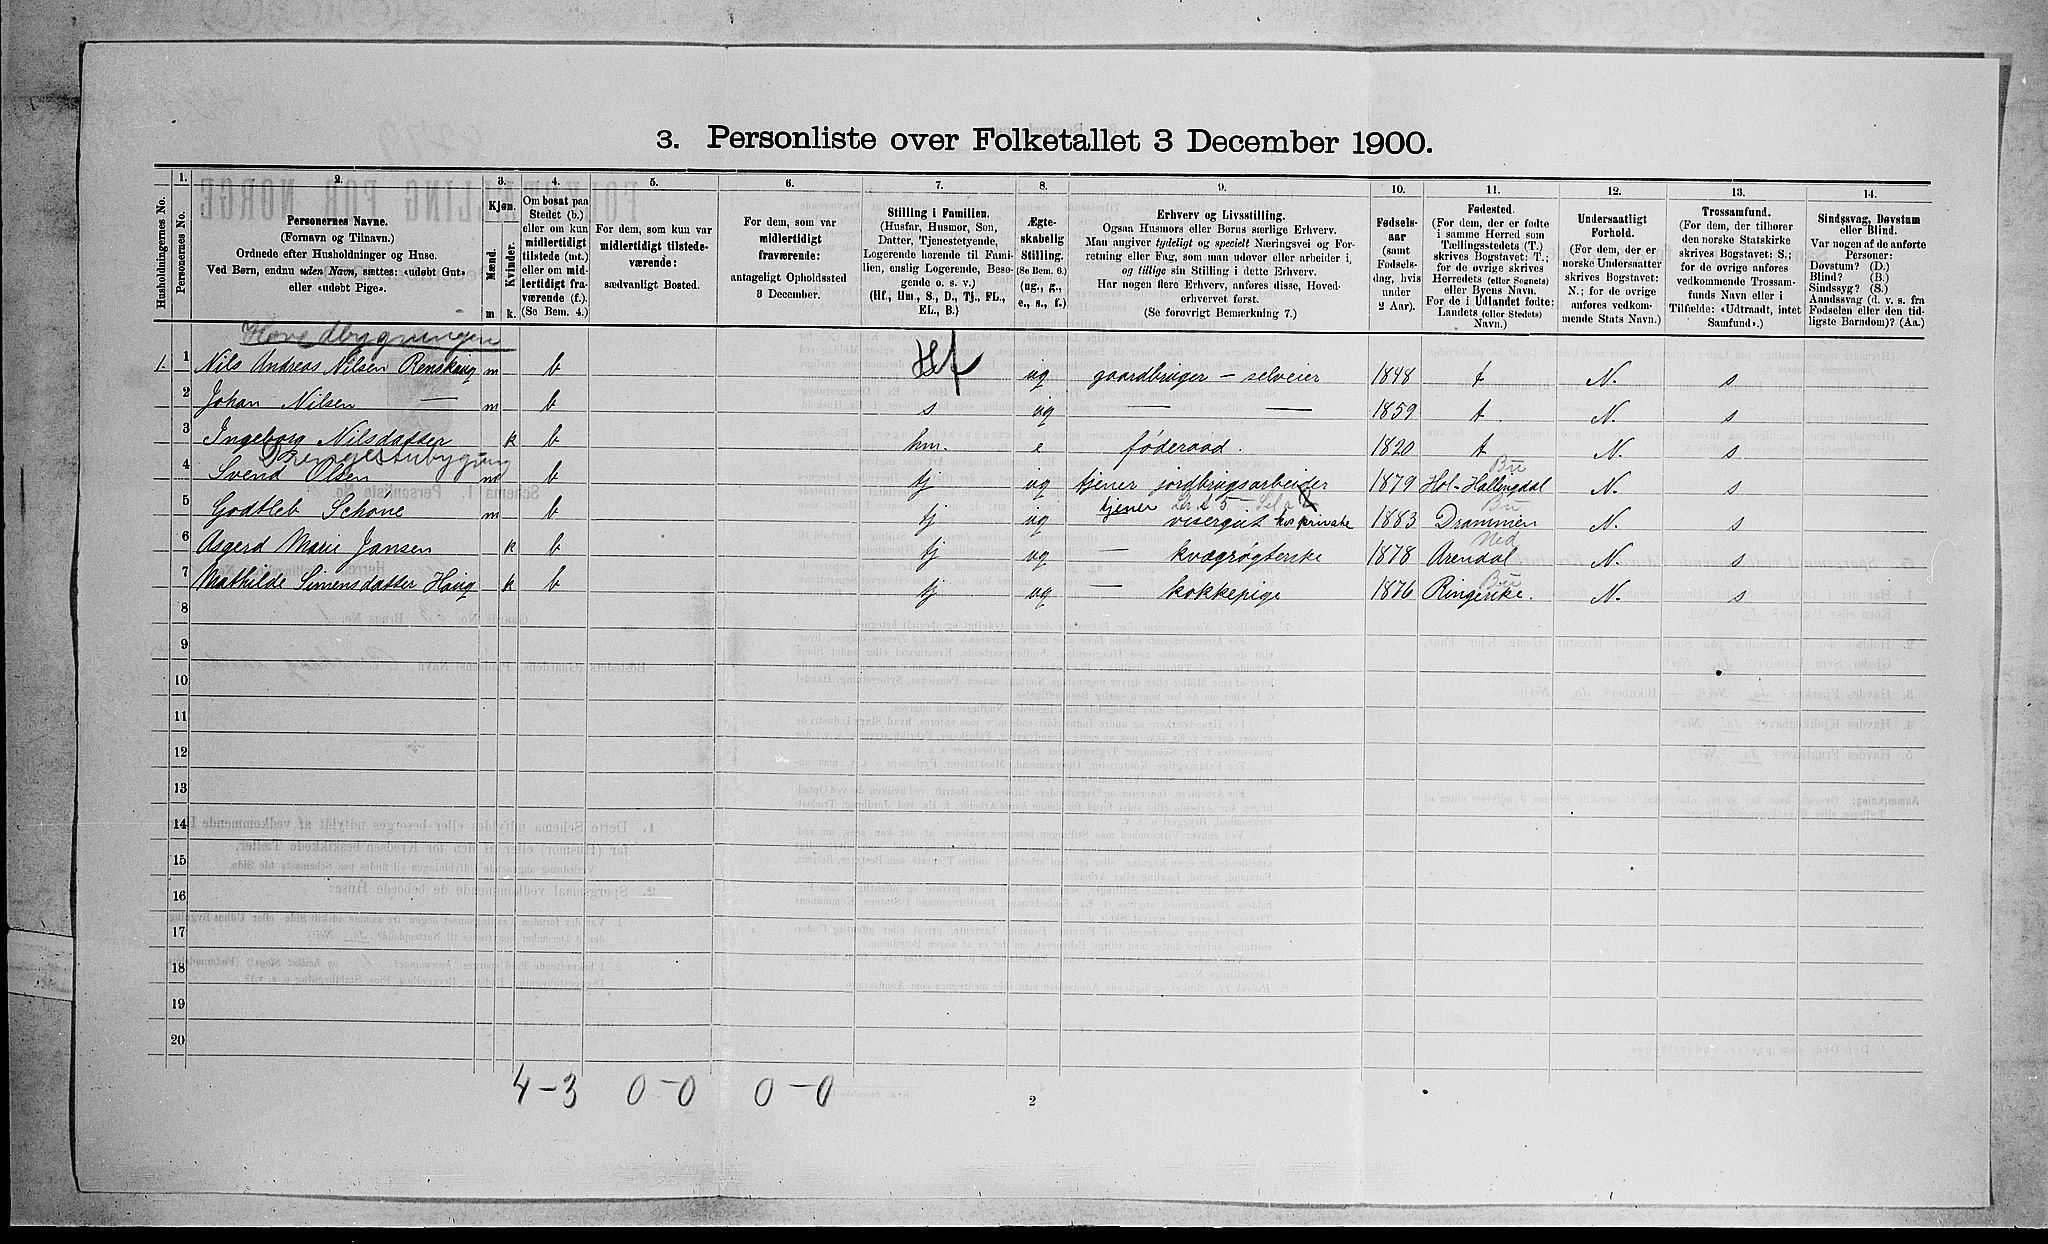 3. Personliste over Folketallet 3 December 1900.
Husholdningernes No.
1.
Personernes No.
2.
Personernes Navne.
(Fornavn og Tilnavn.)
Ordnede efter Husholdninger og Huse.
Ved Børn, endnu uden Navn, sættes: «udøbt Gut»
eller «udøbt Pige».
3.
Kjøn.
Mænd.
Kvinder.
m
k.
4.
Om bosat paa
Stedet (b.)
eller om kun
midlertidigt
tilstede (mt.)
eller om mid-
lertidigt fra-
værende (f.)
(Se Bem. 4.)
5.
For dem, som kun var
midlertidigt tilstede-
værende:
sædvanligt Bosted.
6.
For dem, som var
midlertidigt
fraværende:
antageligt Opholdssted
3 December.
7.
Stilling i Familien.
(Husfar, Husmor, Søn,
Datter, Tjenestetyende,
Logerende hørende til Fami-
lien, enslig Logerende, Besø-
gende o. s. v.)
(Hf., Hm., S., D., Tj., FL.,
EL., B.)
8.
Ægte-
skabelig
Stilling.
(Se Bem. 6.)
(ug., g.,
e., s., f.)
9.
Erhverv og Livsstilling.
Ogsaa Husmors eller Børns særlige Erhverv.
Man angiver tydeligt og specielt Næringsvei og For-
retning eller Fag, som man udøver eller arbeider i,
og tillige sin Stilling i dette Erhverv.
Har nogen flere Erhverv, anføres disse, Hoved-
erhvervet først.
(Se forøvrigt Bemærkning 7.)
10.
Fødsels-
aar
(samt
Fødsels-
dag, hvis
under
2 Aar).
11.
Fødested.
(For dem, der er fødte
i samme Herred som
Tællingsstedets (T.)
skrives Bogstavet: T.;
for de øvrige skrives
Herredets (eller Sognets)
eller Byens Navn.
For de i Udlandet fødte:
Landets (eller Stedets)
Navn.)
12.
Undersaatligt
Forhold.
(For dem, der er
norske Undersaatter
skrives Bogstavet:
N.; for de øvrige
anføres vedkom-
mende Stats Navn.)
13.
Trossamfund.
(For dem, der tilhører
den norske Statskirke
skrives Bogstavet: S.;
for de øvrige anføres
vedkommende Trossam-
funds Navn eller i
Tilfælde: «Udtraadt, intet
Samfund».)
14.
Sindssvag, Døvstum
eller Blind.
Var nogen af de anførte
Personer:
Døvstum? (D.)
Blind? (B.)
Sindssyg? (S.)
Aandssvag (d. v. s. fra
Fødselen eller den tid-
ligste Barndom)? (Aa.)
Hovedbygningen
1. 1 Nils Andreas Nilsen Renskaug m b Hf ug gaardbruger — selveier 1848 t N. s
2 Johan Nilsen — m b s ug — — 1859 t N. s
3 Ingeborg Nilsdatter k b hm. e føderaad. 1820 t N. s
Drengestubygning Bu
4 Svend Olsen m b tj ug tjener jordbrugsarbeider 1879 Hol-Hallingdal N. s
Bu
5 Godtleb Schöne m b tj ug tjener visergut hos private 1883 Drammen N. s
Ned
6 Asgerd Marie Jansen k b tj ug — kvægrøgterske 1878 Arendal N. s
Bu
7 Mathilde Simensdatter Haug k b tj ug — kokkepige 1876 Ringerike. N. s
8
9
10
11
12
13
14
15
16
17
18
19
20
4-3 0-0 0-0
2